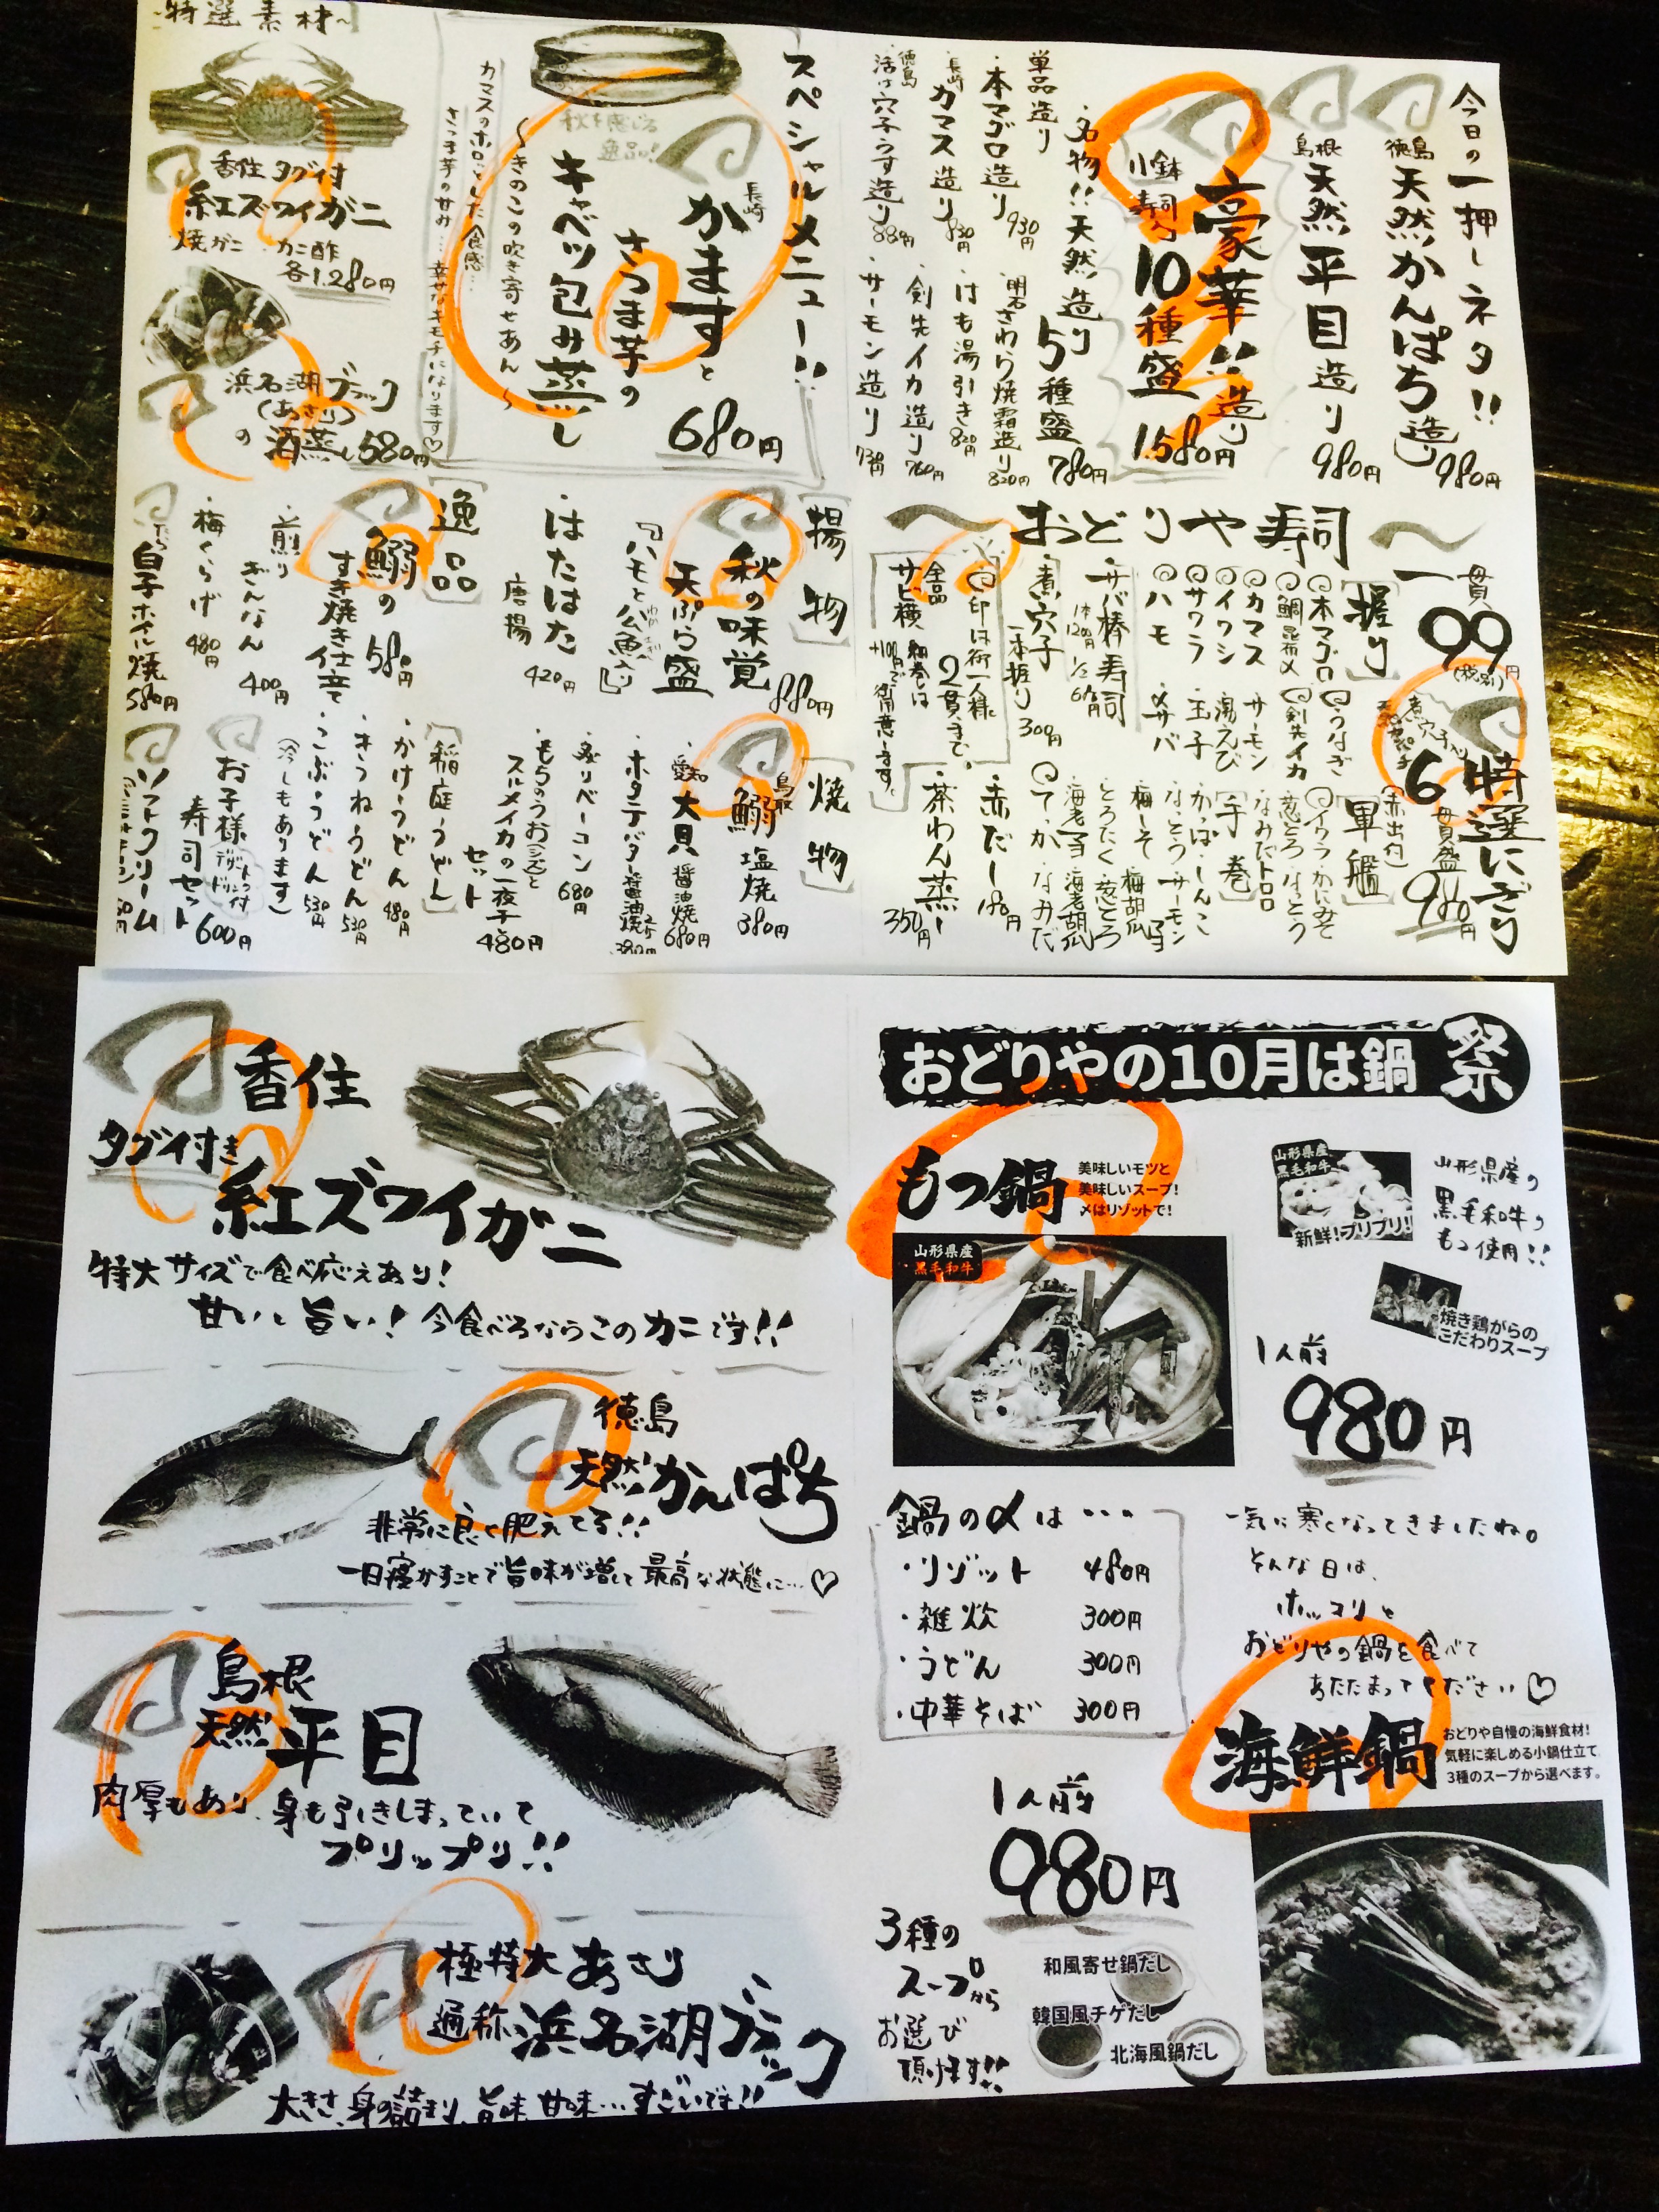 今日の一押しネタ!!
徳島
天然かんぱち造り
980円
島根
天然平目造り
980円
豪華!!造り
10種盛
小鉢
寿司入
1.580円
名物!!天然造り5種盛
780円
単品造り
・本マグロ造り 930円
長崎
・カマス造り 830円
徳島
・活け穴子うす造り 880円
・明石さわら焼霜造り 820円
・はも湯引き 820円
・剣先イカ造り 760円
・サーモン造り 730円
スペシャルメニュー!!
長崎
かますと
さつま芋の
キャベツ包み蒸し
〜きのこの吹き寄せあん〜
680円
秋を感じる
逸品!
カマスのホロっとした食感…
さつま芋の甘み…幸せなキモチになります♡
〜特選素材〜
香住 タグ付
紅ズワイガニ
焼ガニ・カニ酢
各1.280円
浜名湖ブラック
(あさり)
の酒蒸し 580円
〜おどりや寿司〜
一貫99円
(税別)
[握り]
本マグロ
鯛昆布〆
カマス
イワシ
サワラ
ハモ
うなぎ
剣先イカ
サーモン
湯えび
玉子
〆サバ
・サバ棒寿司
1本1200円 1/2 610円
煮穴子
一本握り 300円
印は御一人様
2貫まで。
全品
サビ横
細巻は
+100円で御用意します。
特選にぎり
6貫盛
(赤出付)
980円
[軍艦]
イクラ かにみそ
ねぎとろ なっとう
なみだトロロ
[手巻]
かっぱ・しんこ
なっとう・サーモン
梅しそ 梅胡瓜
とろたく ねぎとろ
海老マヨ 海老胡瓜
てっか なみだ
赤だし 180円
茶わん蒸し 350円
[揚物]
秋の味覚
天ぷら盛
880円
・はたはた
唐揚
420円
[逸品]
鰯の
すき焼き仕立て
580円
・煎り
ぎんなん 400円
・梅くらげ 480円
白子ホイル焼 580円
[焼物]
鳥取
鰯 塩焼 380円
愛知
大貝 醤油焼 680円
ホタテバター醤油焼 2ケ 380円
・炙りベーコン 680円
スルメイカの一夜干し
セット
480円
[稲庭うどん]
・かけうどん 480円
・きつねうどん 530円
・こぶうどん 530円
(冷しもあります)
お子様
寿司セット
デザート
ドリンク付
600円
ソフトクリーム
香住
タグ付き
紅ズワイガニ
特大サイズで食べ応えあり!
甘いし旨い!今食べるならこのカニです!!
徳島
天然かんぱち
非常に良く肥えてる!!
一日寝かすことで旨味が増して最高な状態に…♡
島根
天然平目
肉厚もあり、身も引きしまっていて
プリップリ!!
極特大あさり
通称浜名湖ブラック
大きさ、身の詰まり、旨味、甘味…すごいです!!
おどりやの10月は鍋祭
もつ鍋
美味しいモツと
美味しいスープ!
〆はリゾットで!
山形県産
黒毛和牛
山形県産
黒毛和牛
新鮮!プリプリ!
山形県産の
黒毛和牛の
もつ使用!!
焼き鶏がらの
こだわりスープ
1人前
980円
鍋の〆は・・・
・リゾット 480円
・雑炊 300円
・うどん 300円
・中華そば 300円
一気に寒くなってきましたね。
そんな日は、
ホッコリと
おどりやの鍋を食べて
あたたまってください♡
海鮮鍋
おどりや自慢の海鮮食材!
気軽に楽しめる小鍋仕立て
3種のスープから選べます。
1人前
980円
3種の
スープから
お選び
頂けます!!
和風寄せ鍋だし
韓国風チゲだし
北海風鍋だし